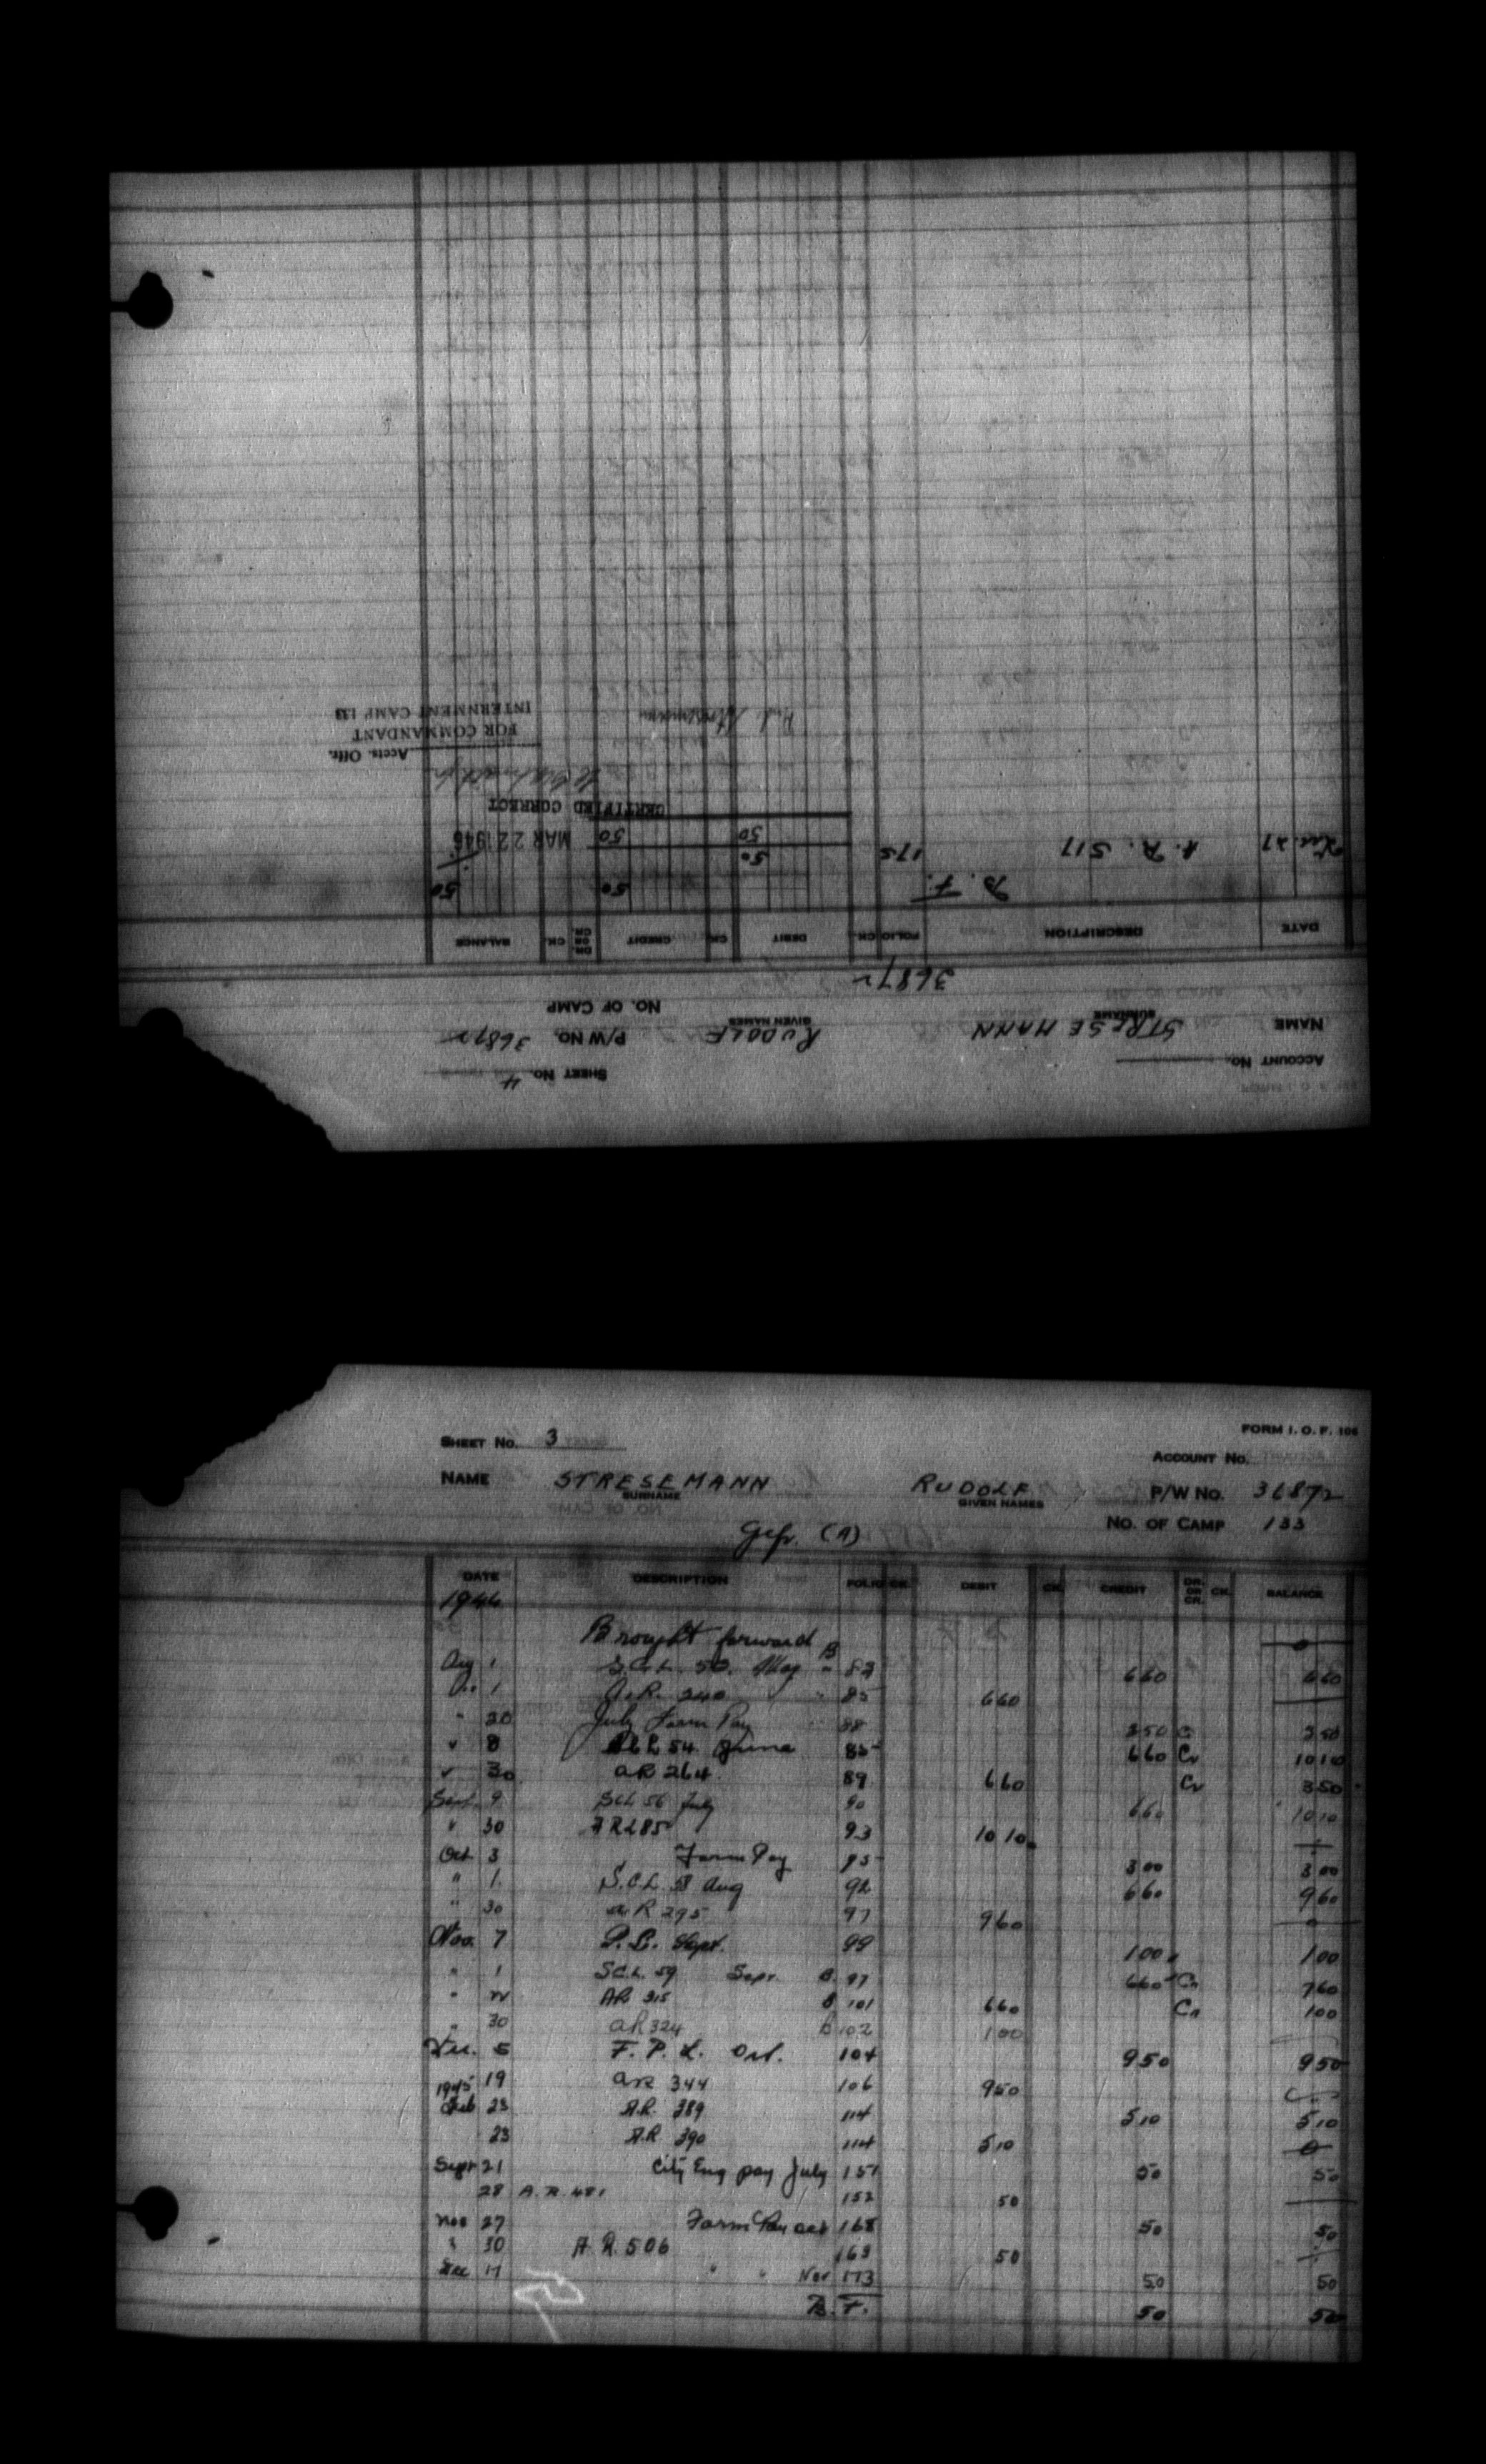 SHEET No. 4
ACCOUNT No.
NAME STRESEMANN RUDOLF P/W No. 36872
SURNAME GIVEN NAMES
NO. OF CAMP
36872
DATE DESCRIPTION FOLIO CK. DEBIT CK. CREDIT DR. OR CR. CK. BALANCE
B. F. 50 50
Dec. 27 A. R. 517 175 50
50 50 MAR 22 1946
CERTIFIED CORRECT
Accts. Offr.
FOR COMMANDANT
INTERNMENT CAMP 133
FORM I. O. F. 106
SHEET No. 3
ACCOUNT No.
NAME STRESEMANN RUDOLF P/W No. 36872
SURNAME GIVEN NAMES
NO. OF CAMP 133
Gefr. (A)
DATE DESCRIPTION FOLIO CK. DEBIT CK. CREDIT DR. OR CR. CK. BALANCE
1944
Brought forward 0
Aug 1 S.C.L. 50. May 83 660 660
1 A.R. 240 85 660
" 20 July Farm Pay 88 350 350
" 8 54 June 85 660 Cr 1010
" 30 AR 264 89 660 Cr 350
Sept. 9 SCL 56 July 90 660 1010
" 30 AR 285 93 1010
Oct 3 Farm Pay 95 300 300
" 1 S.C.L. 58 Aug 92 660 960
" 30 a.R 295 97 960
Nov. 7 Sept. 99 100 100
" 1 SCL 59 Sept. B 97 660 Cr 760
" AR 315 B 101 660 Cr 100
" 30 aR 324 B 102 100
Dec. 5 F. P. L. Oct. 104 950 950
19 aR 344 106 950
1945
Feb 23 A.R. 389 114 510 510
23 A.R. 390 114 510 0
Sept 21 City Eng pay July 151 50 50
28 A.R. 481 152 50
Nov 27 Farm Pay Oct 168 50 50
" 30 A.R. 506 169 50
Dec 17 " " Nov 173 50 50
B. F. 50 50